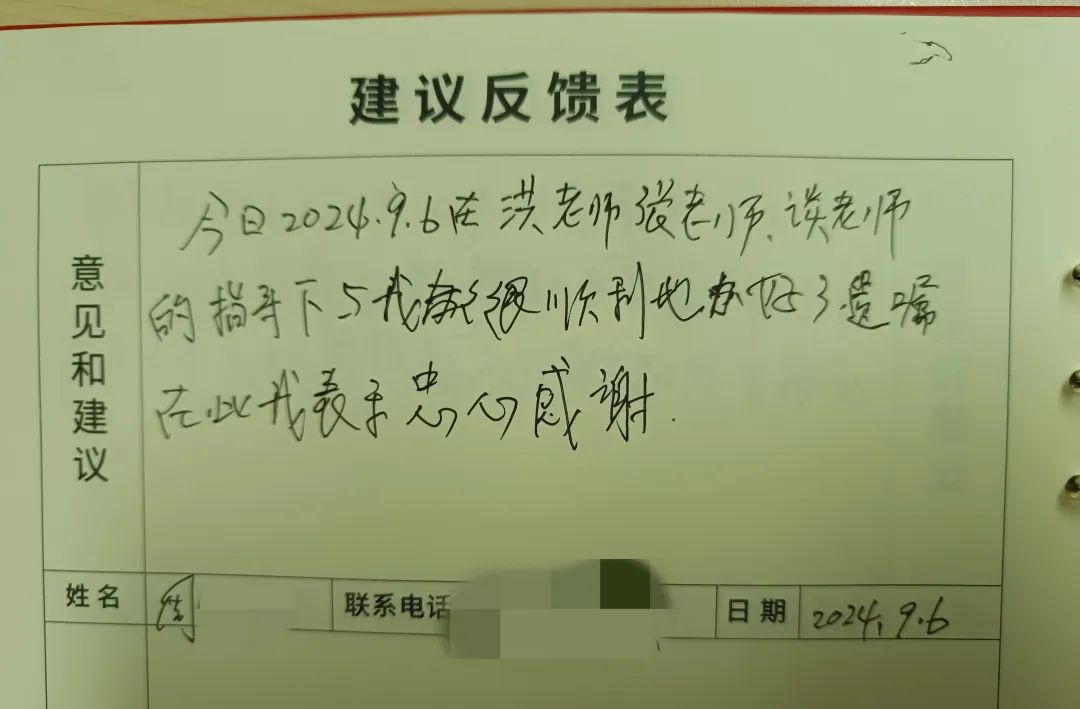 建议反馈表
意见和建议
今日2024.9.6在洪老师张老师、谈老师
的指导下与我很顺利地办好了遗嘱
在此我表示忠心感谢.
姓名 周 联系电话 日期 2024.9.6